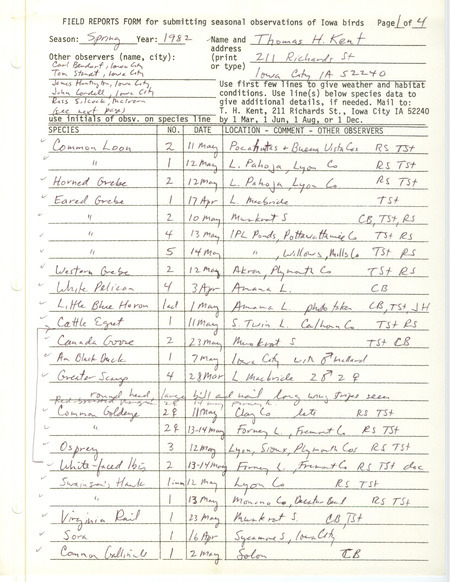 FIELD REPORTS FORM for submitting seasonal observations of Iowa birds Page 1 of 4
Season: Spring Year: 1982 Name and address (print or type) Thomas H. Kent
211 Richards St
Iowa City IA 52240
Other observers (name, city):
Carl Bendorf, Iowa City
Tom Staudt, Iowa City
James Huntington, Iowa City
John Cordell, Iowa City
Ross Silcock, Malvern
(see next page)
Use first few lines to give weather and habitat conditions. Use line(s) below species data to give additional details, if needed. Mail to: T. H. Kent, 211 Richards St., Iowa City IA 52240 by 1 Mar, 1 Jun, 1 Aug, or 1 Dec.
use initials of obsv. on species line
SPECIES NO. DATE LOCATION - COMMENT - OTHER OBSERVERS
Common Loon 2 11 May Pocahontas + Buena Vista Co RS TSt
" 1 12 May L. Pahoja, Lyon Co RS TSt
Horned Grebe 2 12 May L. Pahoja, Lyon Co RS TSt
Eared Grebe 1 17 Apr L. Macbride TSt
" 2 10 May Muskrat S CB, TSt, RS
" 4 13 May IPL Ponds, Pottawattamie Co TSt RS
" 5 14 May ", Willows, Mills Co TSt RS
Western Grebe 2 12 May Akron, Plymouth Co TSt RS
White Pelican 4 3 Apr Amana L. CB
Little Blue Heron 1ad 1 May Amana L. photo taken CB, TSt, JH
Cattle Egret 1 11 May S. Twin L. Calhoun Co TSt RS
Canada Goose 2 23 May Muskrat S TSt CB
Am Black Duck 1 7 May Iowa City with ♂ mallard
Greater Scaup 4 28 Mar L Macbride 2♂ 2♀
round head, large bill and nail long wing stripes seen
Common Goldeneye 2♀ 11 May Clay Co late RS TSt
" 2♀ 13-14 May Forney L, Fremont Co RS TSt
Osprey 3 12 May Lyon, Sioux, Plymouth Cos RS TSt
White-faced Ibis 2 13-14 May Forney L, Fremont Co RS TSt doc
Swainson's Hawk 1 imm 12 May Lyon Co RS TSt
" 1 13 May Monona Co, RS TSt
Virginia Rail 1 23 May Muskrat S. CB, TSt
Sora 1 16 Apr Sycamore S, Iowa City
Common Gallinule 1 2 May Solon CB